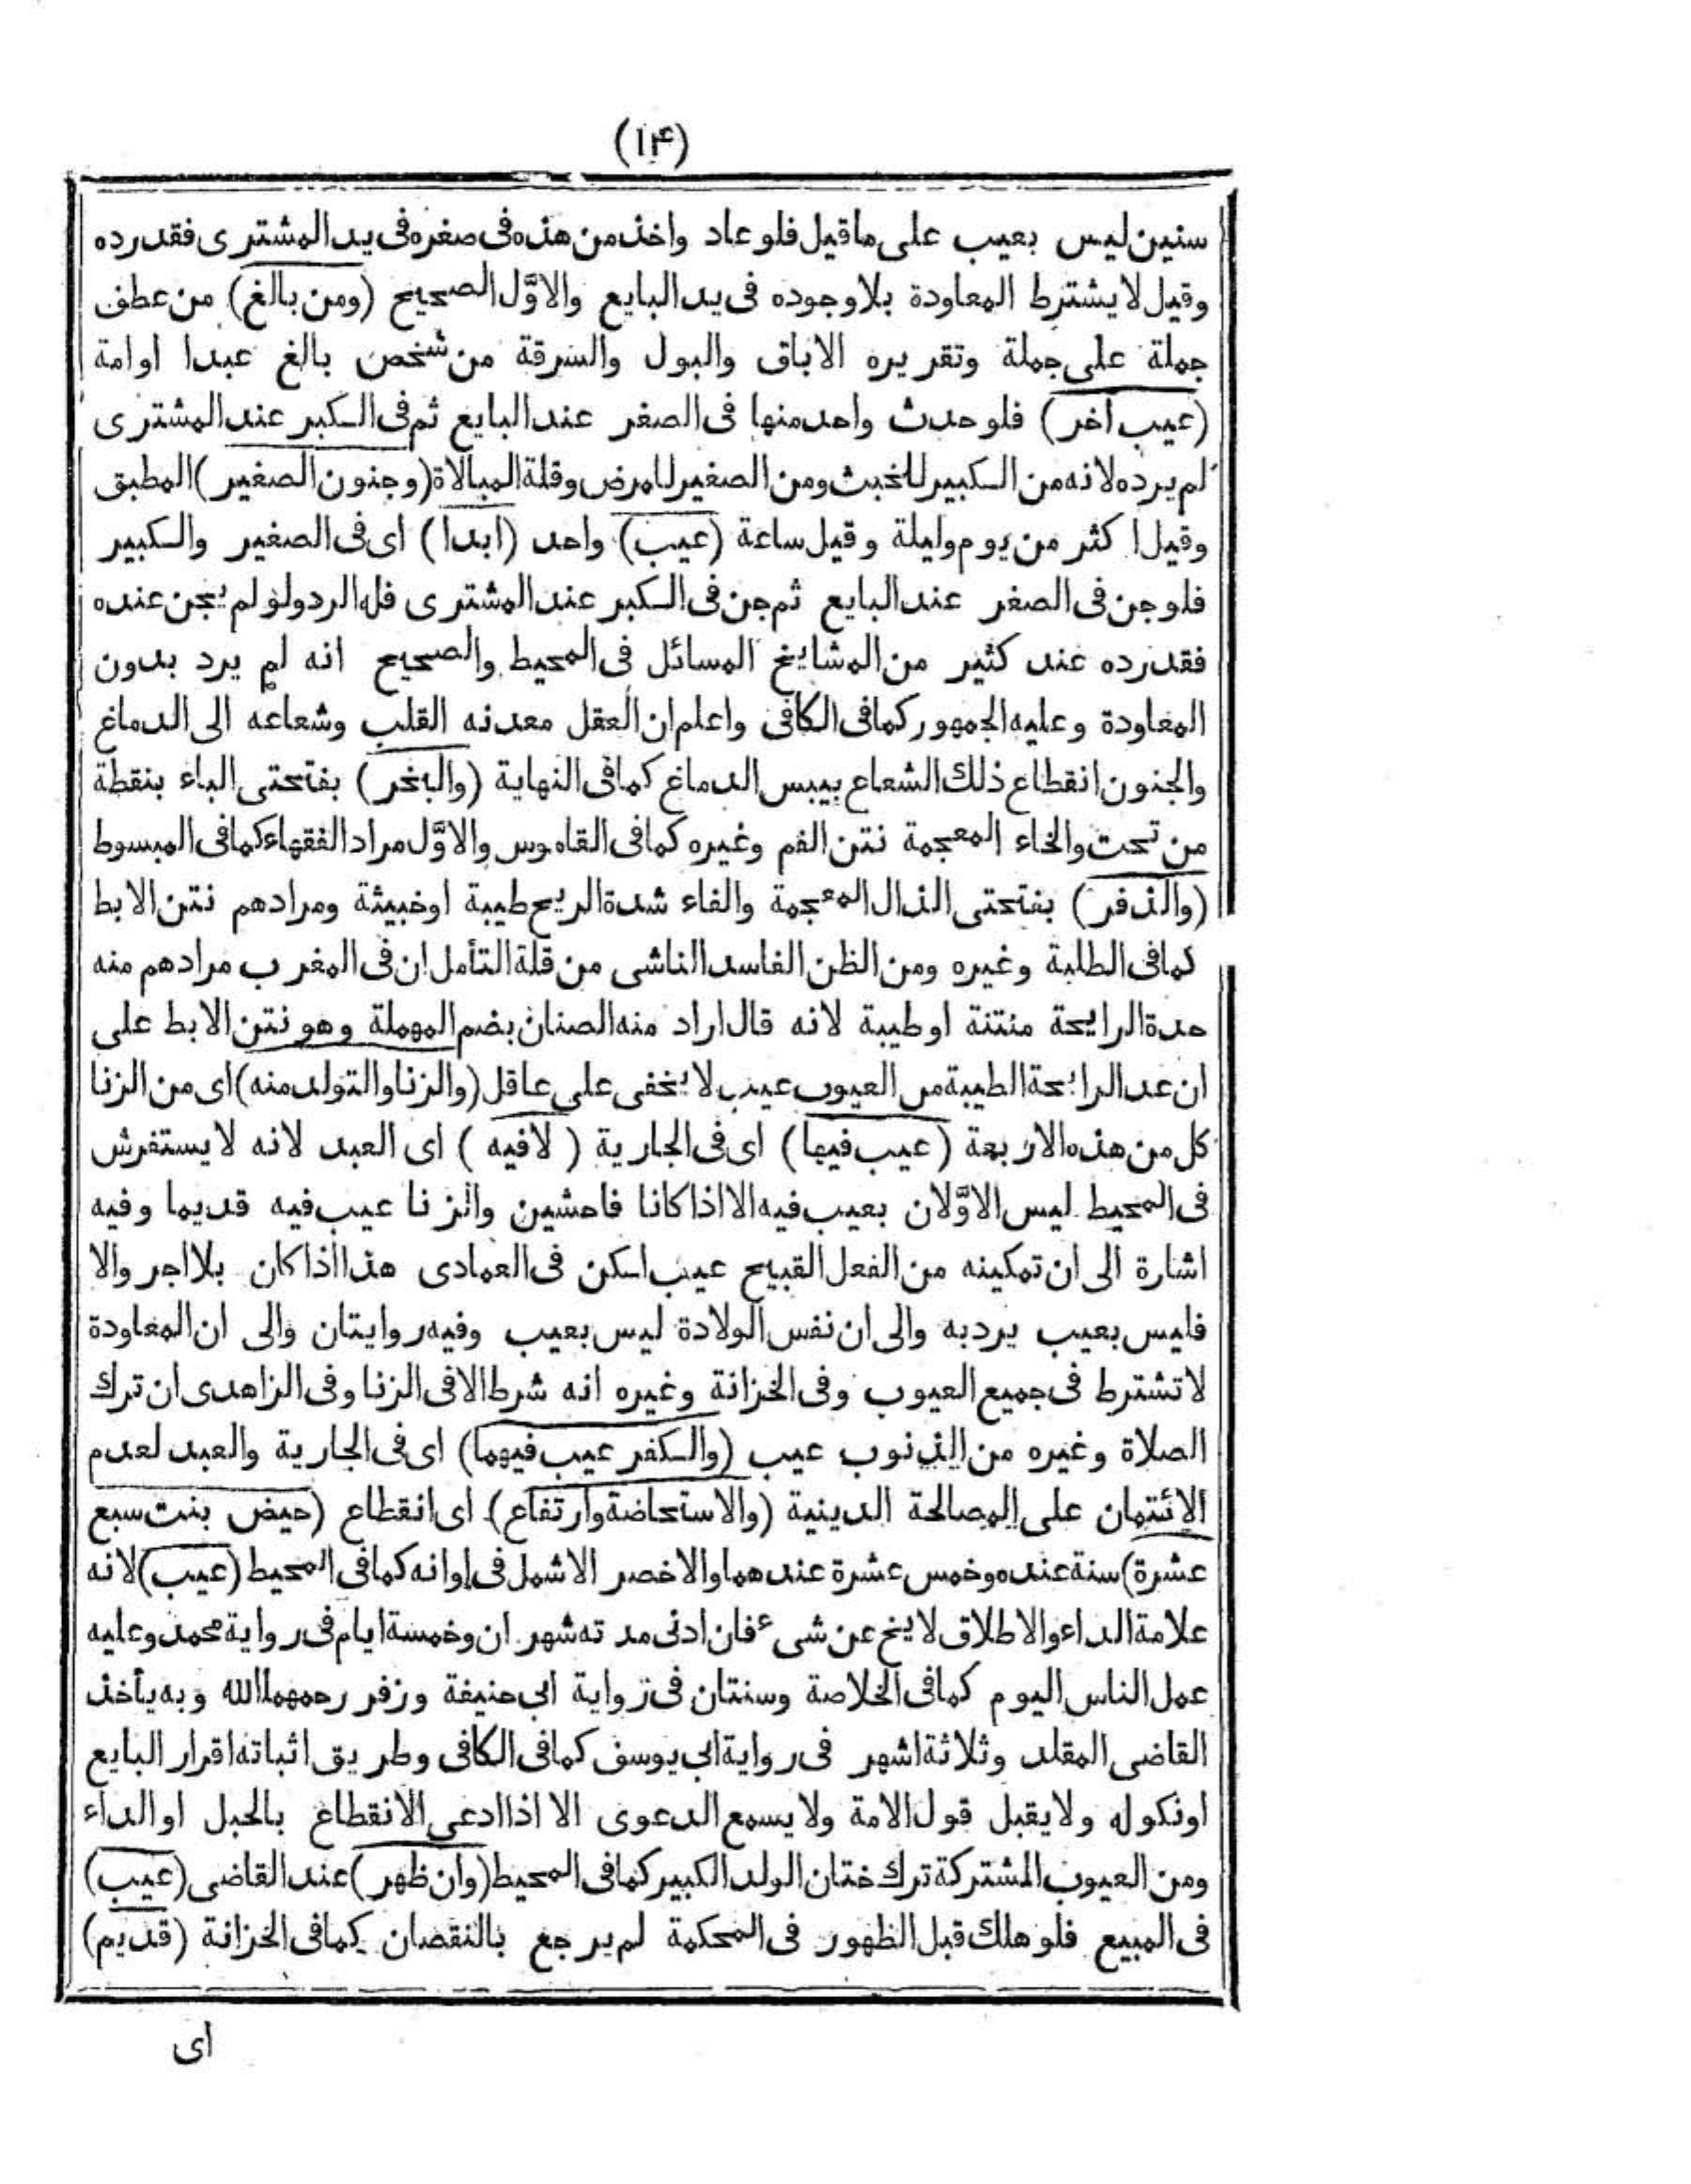 (١۴)
سنين ليس بعيب على ماقيل فلو عاد واخذ من هذه فى صغره فى يد المشترى فقد رده
وقيل لا يشترط المعاودة بلا وجوده فى يد البايع والاوّل الصحيح (ومن بالغ) من عطف
جملة على جملة وتقريره الاباق والبول والسرقة من شخص بالغ عبدا اوامة
(عيب آخر) فلو حدث واحد منها فى الصغر عند البايع ثم فى الكبر عند المشترى
لم يرده لانه من الكبير للخبث ومن الصغير للمرض وقلة المبالاة (وجنون الصغير) المطبق
وقيل اكثر من يوم وليلة وقيل ساعة (عيب) واحد (ابدا) اى فى الصغير والكبير
فلو جن فى الصغر عند البايع ثم جن فى الكبر عند المشترى فله الرد ولو لم يجن عنده
فقد رده عند كثير من المشايخ المسائل فى المحيط والصحيح انه لم يرد بدون
المعاودة وعليه الجمهور كما فى الكافى واعلم ان العقل معدنه القلب وشعاعه الى الدماغ
والجنون انقطاع ذلك الشعاع بيبس الدماغ كما فى النهاية (والبخر) بفتحتى الباء بنقطة
من تحت والخاء المعجمة نتن الفم وغيره كما فى القاموس والاوّل مراد الفقهاء كما فى المبسوط
(والذفر) بفتحتى الذال المعجمة والفاء شدة الريح طيبة اوخبيثة ومرادهم نتن الابط
كما فى الطلبة وغيره ومن الظن الفاسد الناشى من قلة التأمل ان فى المغرب مرادهم منه
حدة الرايحة منتنة اوطيبة لانه قال اراد منه الصنان بضم المهملة وهو نتن الابط على
ان عد الرايحة الطيبة من العيوب عيب لا يخفى على عاقل (والزنا والتولد منه) اى من الزنا
كل من هذه الاربعة (عيب فيها) اى فى الجارية (لا فيه) اى العبد لانه لا يستفرش
فى المحيط ليس الاوّلان بعيب فيه الا اذا كانا فاحشين والزنا عيب فيه قديما وفيه
اشارة الى ان تمكينه من الفعل القبيح عيب لكن فى العمادى هذا اذا كان بلا اجر والا
فليس بعيب يرد به والى ان نفس الولادة ليس بعيب وفيه روايتان والى ان المعاودة
لا تشترط فى جميع العيوب وفى الخزانة وغيره انه شرط الا فى الزنا وفى الزاهدى ان ترك
الصلاة وغيره من الذنوب عيب (والكفر عيب فيهما) اى فى الجارية والعبد لعدم
الائتمان على المصالحة الدينية (والاستحاضة وارتفاع) اى انقطاع (حيض بنت سبع
عشرة) سنة عنده وخمس عشرة عندهما والاخصر الاشمل فى اوانه كما فى المحيط (عيب) لانه
علامة الداء والاطلاق لا يخ عن شىء فان ادنى مدته شهران وخمسة ايام فى رواية محمد وعليه
عمل الناس اليوم كما فى الخلاصة وسنتان فى رواية ابى حنيفة وزفر رحمهما الله وبه يأخذ
القاضى المقلد وثلاثة اشهر فى رواية ابى يوسف كما فى الكافى وطريق اثباته اقرار البايع
اونكوله ولا يقبل قول الامة ولا يسمع الدعوى الا اذا ادعى الانقطاع بالحبل اوالداء
ومن العيوب المشتركة ترك ختان الولد الكبير كما فى المحيط (وان ظهر) عند القاضى (عيب)
فى المبيع فلو هلك قبل الظهور فى المحكمة لم يرجع بالنقصان كما فى الخزانة (قديم)
اى